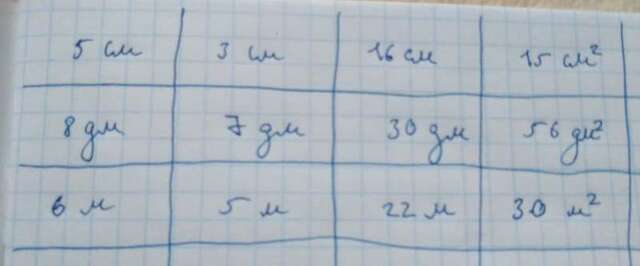 5 см 3 см 16 см 15 см²
8 дм 7 дм 30 дм 56 дм²
6 м 5 м 22 м 30 м²